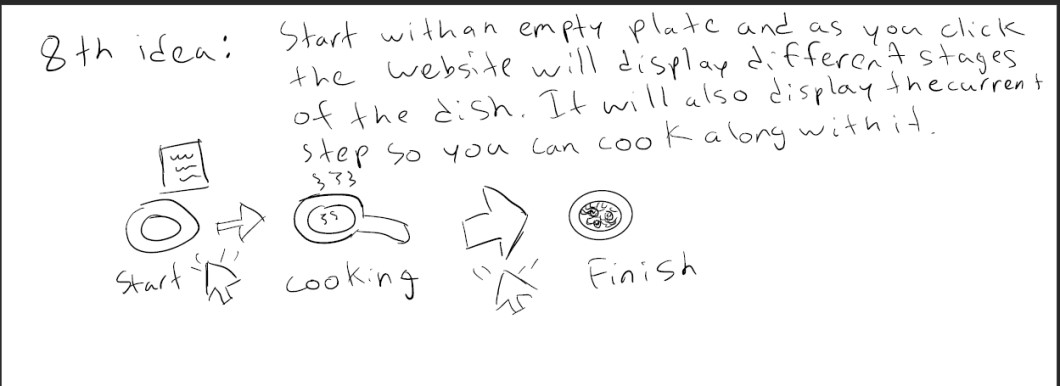 8th idea: Start with an empty plate and as you click
the website will display different stages
of the dish. It will also display the current
step so you can cook along with it.
Start
cooking
Finish